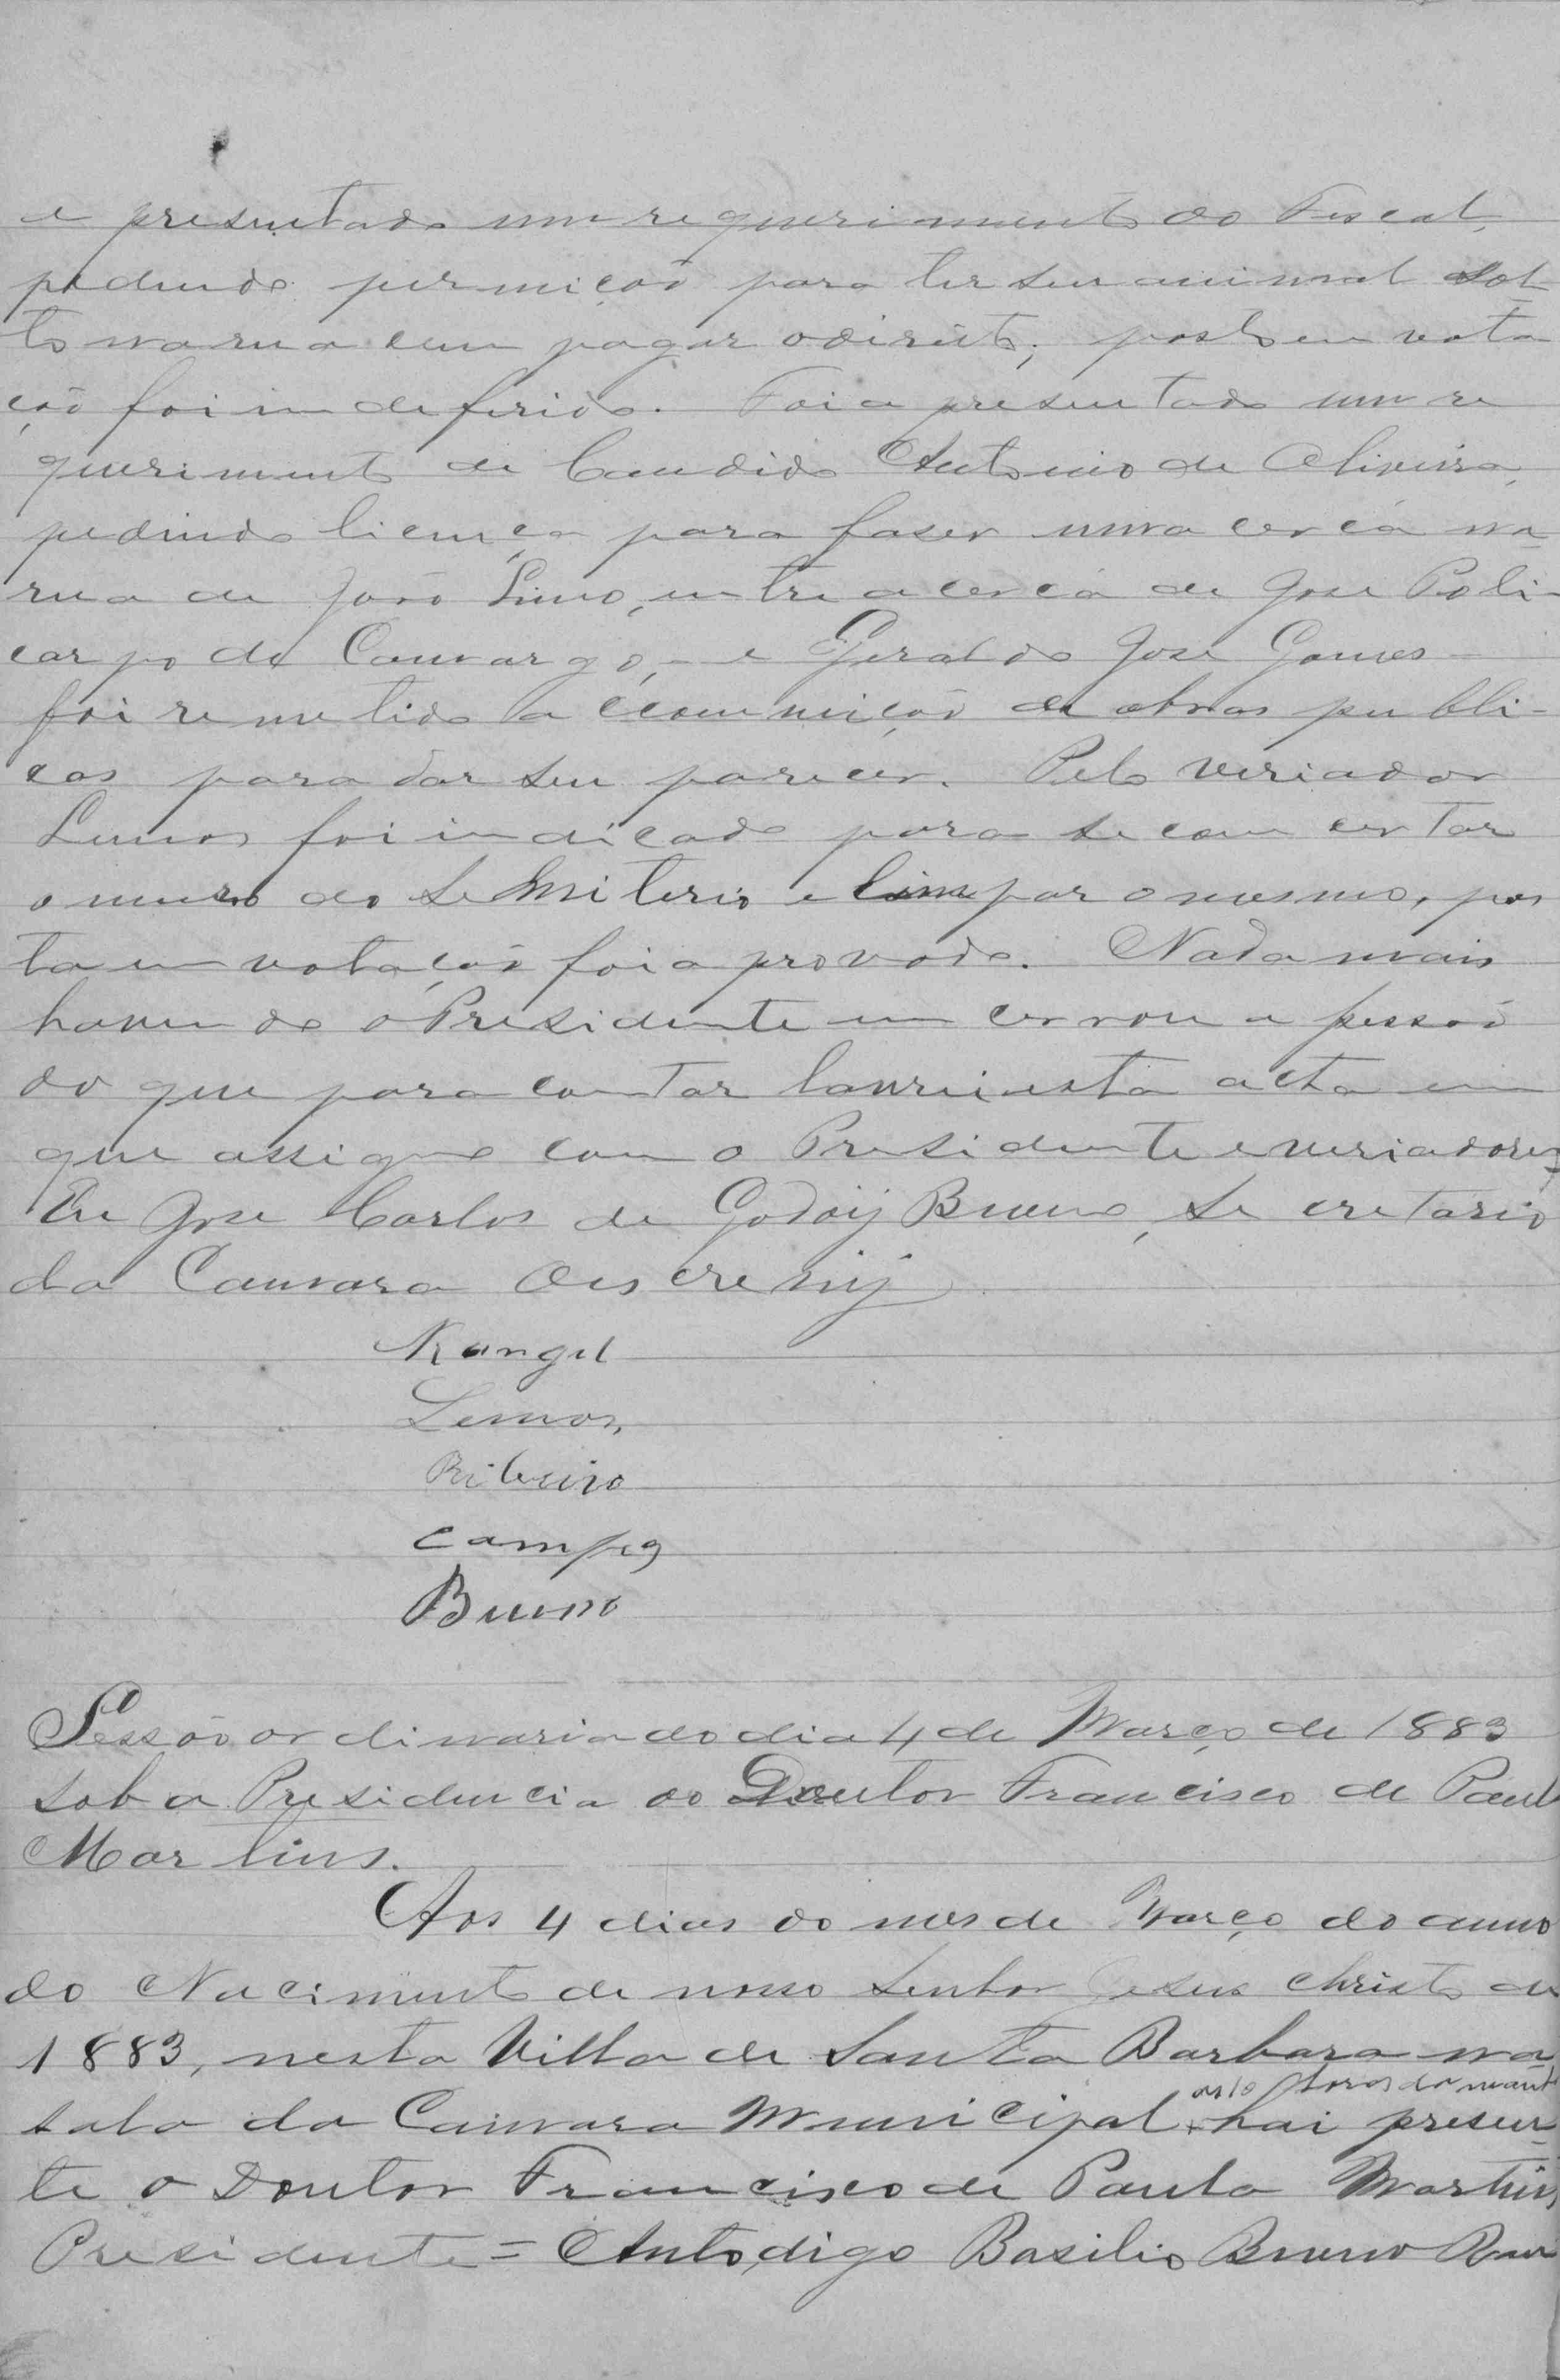 e presentado um requerimento do Fiscal,
pedindo permição para ter seu animal sol-
to na rua cem pagar odireito; posto em vota
ção foi indeferido. Foi apresentado um re
querimento de Candido Antonio de Oliveira,
pedindo licença para faser uma cerca na
rua de João Lino, entre a cerca de Jose Poli-
carpo de Camargo, - e Geraldo Jose Gomes -
foi remetido a commição de obras publi-
cas para dar seu parecer. Pelo veriador
Lemos foi indicado para se concertar
o muro do Semiterio e limpar o mesmo, pos
ta em votação foi aprovado. Nada mais
havendo o Presidente encerrou a sessão
do que para contar lavrei esta acta em
que assigno com o Presidente e veriadores,
Eu Jose Carlos de Godoij Bueno, Secretario
da Camara Oescrevij
Rangel
Lemos,
Ribeiro
Campos
Bueno
Sessão ordinaria do dia 4 de Março de 1883
sob a Presidencia do Doutor Francisco de Paul
Martins.
Aos 4 dias do mes de Março do anno
do Nacimento de nosso Senhor Jesus Christo de
1883, nesta Villa de Santa Barbara na
sala da Camara Municipal as 10 horas da manh hai presen-
te o Doutor Francisco de Paula Martins
Presidente = Anto, digo Basilio Bueno